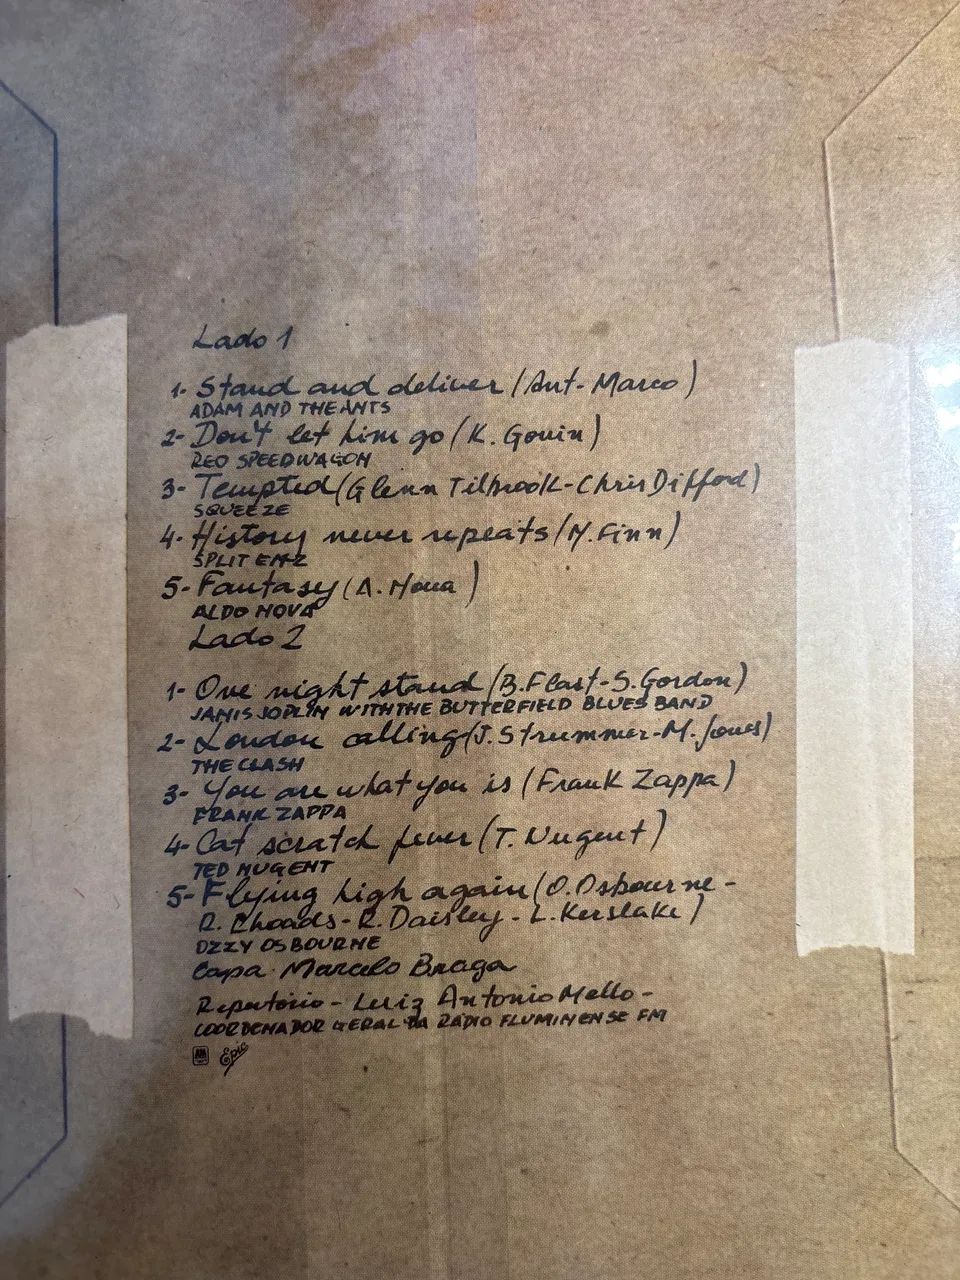 Lado 1
1- Stand and deliver (Ant-Marco)
ADAM AND THE ANTS
2- Don't let him go (K. Gonin)
REO SPEEDWAGON
3- Tempted (Glenn Tilbrook-Chris Difford)
SQUEEZE
4- History never repeats (N. Finn)
SPLIT ENZ
5- Fantasy (A. Nova)
ALDO NOVA
Lado 2
1- One night stand (B. Flast-S. Gordon)
JANIS JOPLIN WITH THE BUTTERFIELD BLUES BAND
2- London calling (J. Strummer-M. Jones)
THE CLASH
3- You are what you is (Frank Zappa)
FRANK ZAPPA
4- Cat scratch fever (T. Nugent)
TED NUGENT
5- Flying high again (O. Osbourne-
R. Rhoads-R. Daisley-L. Kerslake)
OZZY OSBOURNE
Capa Marcelo Braga
Repertório - Luiz Antonio Mello-
COORDENADOR GERAL DA RADIO FLUMINENSE FM
A&M Epic